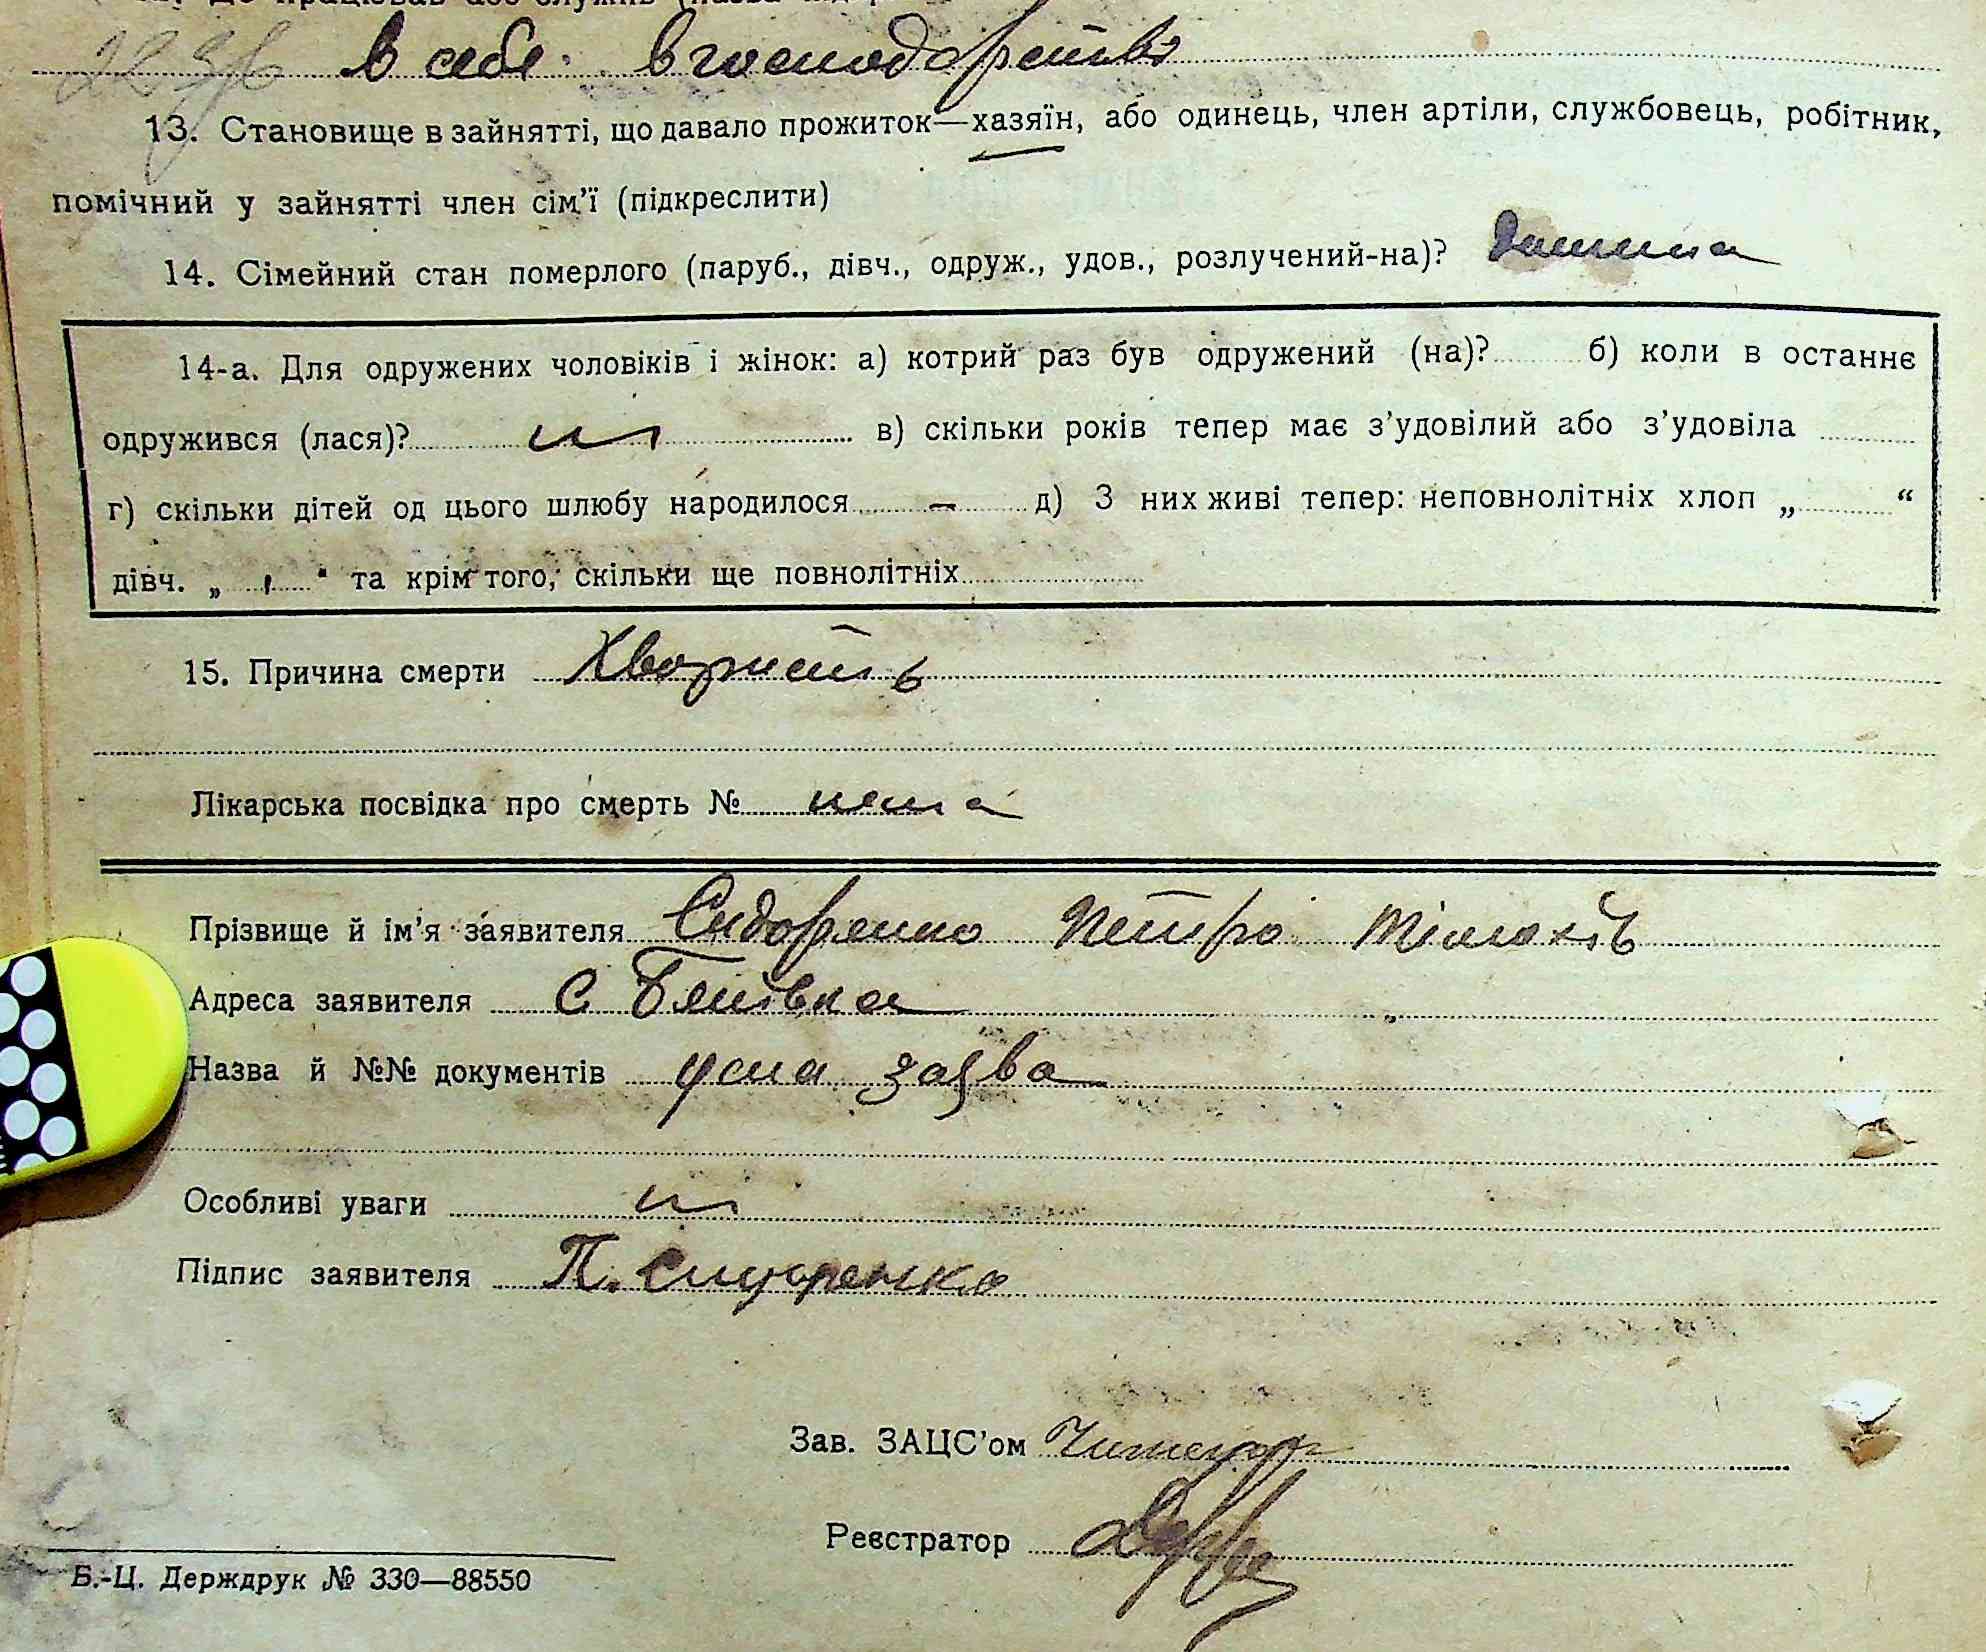 в себе в господорстві
13. Становище в зайнятті, що давало прожиток—хазяїн, або одинець, член артіли, службовець, робітник,
помічний у зайнятті член сім'ї (підкреслити)
14. Сімейний стан померлого (паруб., дівч., одруж., удов., розлучений-на)?
14-а. Для одружених чоловіків і жінок: а) котрий раз був одружений (на)? б) коли в останнє
одружився (лася)? в) скільки років тепер має з'удовілий або з'удовіла
г) скільки дітей од цього шлюбу народилося — д) З них живі тепер: неповнолітніх хлоп „ “
дівч. „ “ та крім того, скільки ще повнолітніх
15. Причина смерти Хвористь
Лікарська посвідка про смерть № нема
Прізвище й ім'я заявителя Сидоренко Петро
Адреса заявителя С
Назва й №№ документів усна заява
Особливі уваги
Підпис заявителя П.
Зав. ЗАЦС'ом
Реєстратор
Б.-Ц. Держдрук № 330—88550